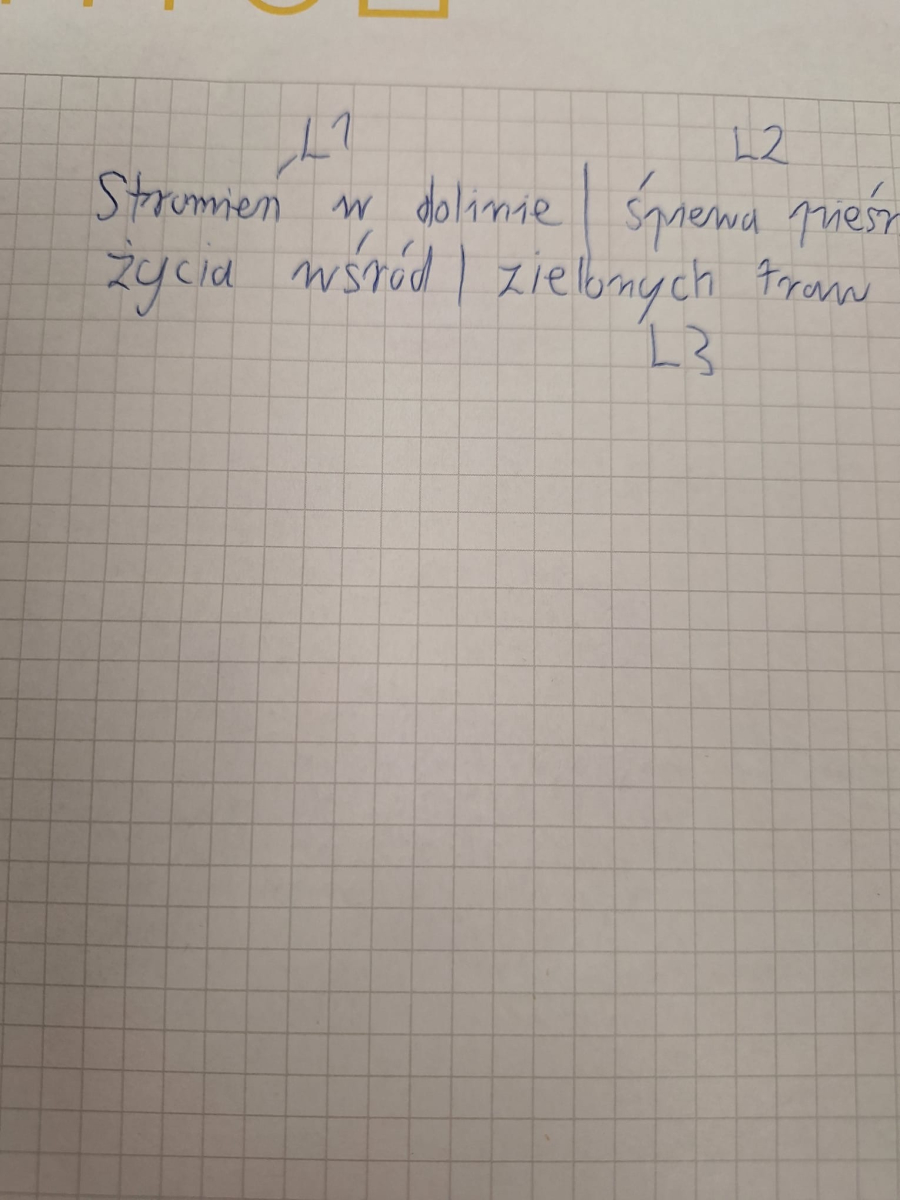 L1 L2
Strumień w dolinie | śpiewa pieśń
życia wśród | zielonych traw
L3